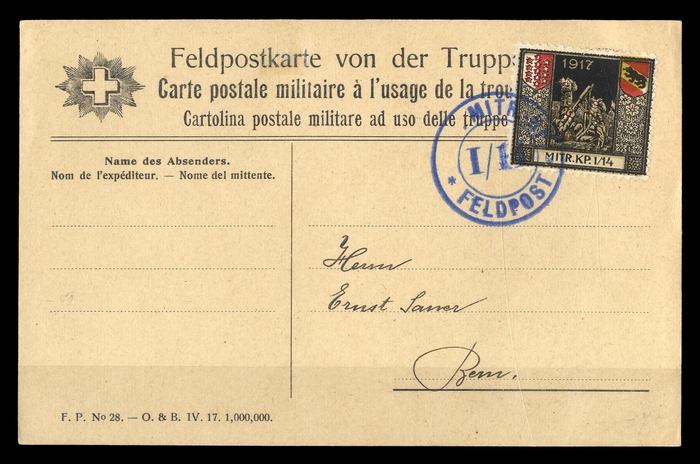 Feldpostkarte von der Trupp
Carte postale militaire à l'usage de la trou
Cartolina postale militare ad uso delle truppe
1917
MITR.KP. I/14
MITR
I/1
* FELDPOST *
Name des Absenders.
Nom de l'expéditeur. — Nome del mittente.
Herrn
Ernst Saner
Bern.
F. P. No 28. — O. & B. IV. 17. 1,000,000.